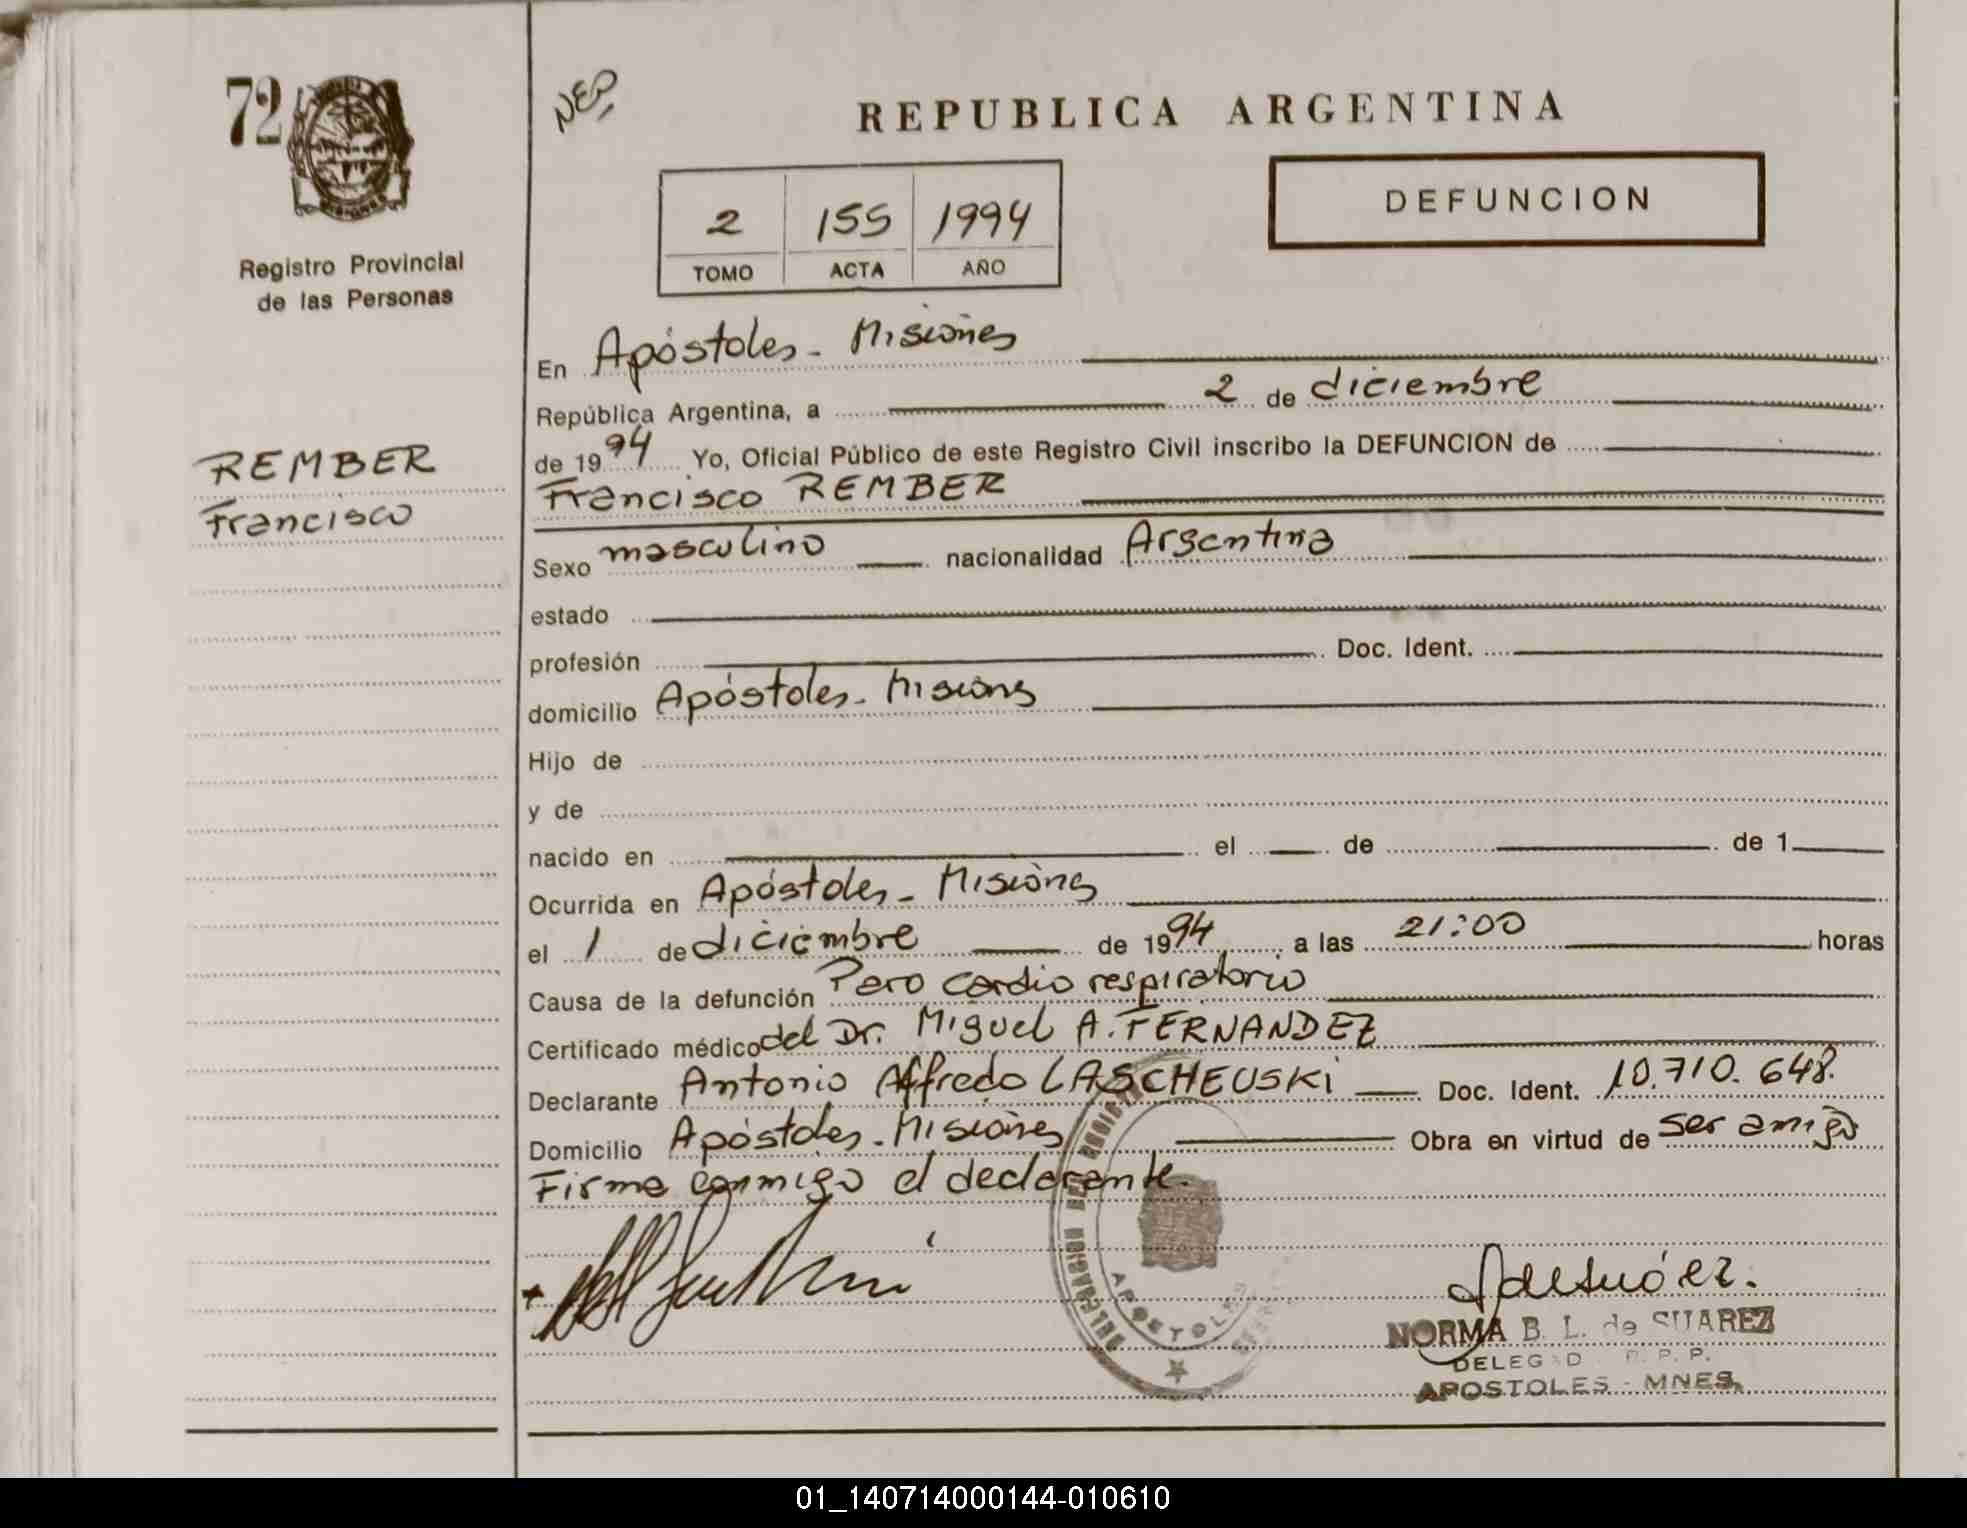 72
Registro Provincial
de las Personas
REMBER
Francisco
NEO
REPUBLICA ARGENTINA
2 155 1994
TOMO ACTA AÑO
DEFUNCION
En Apóstoles - Misiones
República Argentina, a 2 de diciembre
de 1994 Yo, Oficial Público de este Registro Civil inscribo la DEFUNCION de
Francisco REMBER
Sexo masculino nacionalidad Argentina
estado
profesión Doc. Ident.
domicilio Apóstoles - Misiones
Hijo de
y de
nacido en el de de 1
Ocurrida en Apóstoles - Misiones
el 1 de diciembre de 1994 a las 21:00 horas
Causa de la defunción Paro cardio respiratorio
Certificado médico del Dr. Miguel A. FERNANDEZ
Declarante Antonio Alfredo LASCHEUSKI Doc. Ident. 10.710.648.
Domicilio Apóstoles - Misiones Obra en virtud de ser amigo
Firma conmigo el declarante.
APOSTOLES
NORMA B. L. de SUAREZ
R. P. P.
APOSTOLES - MNES.
01_140714000144-010610